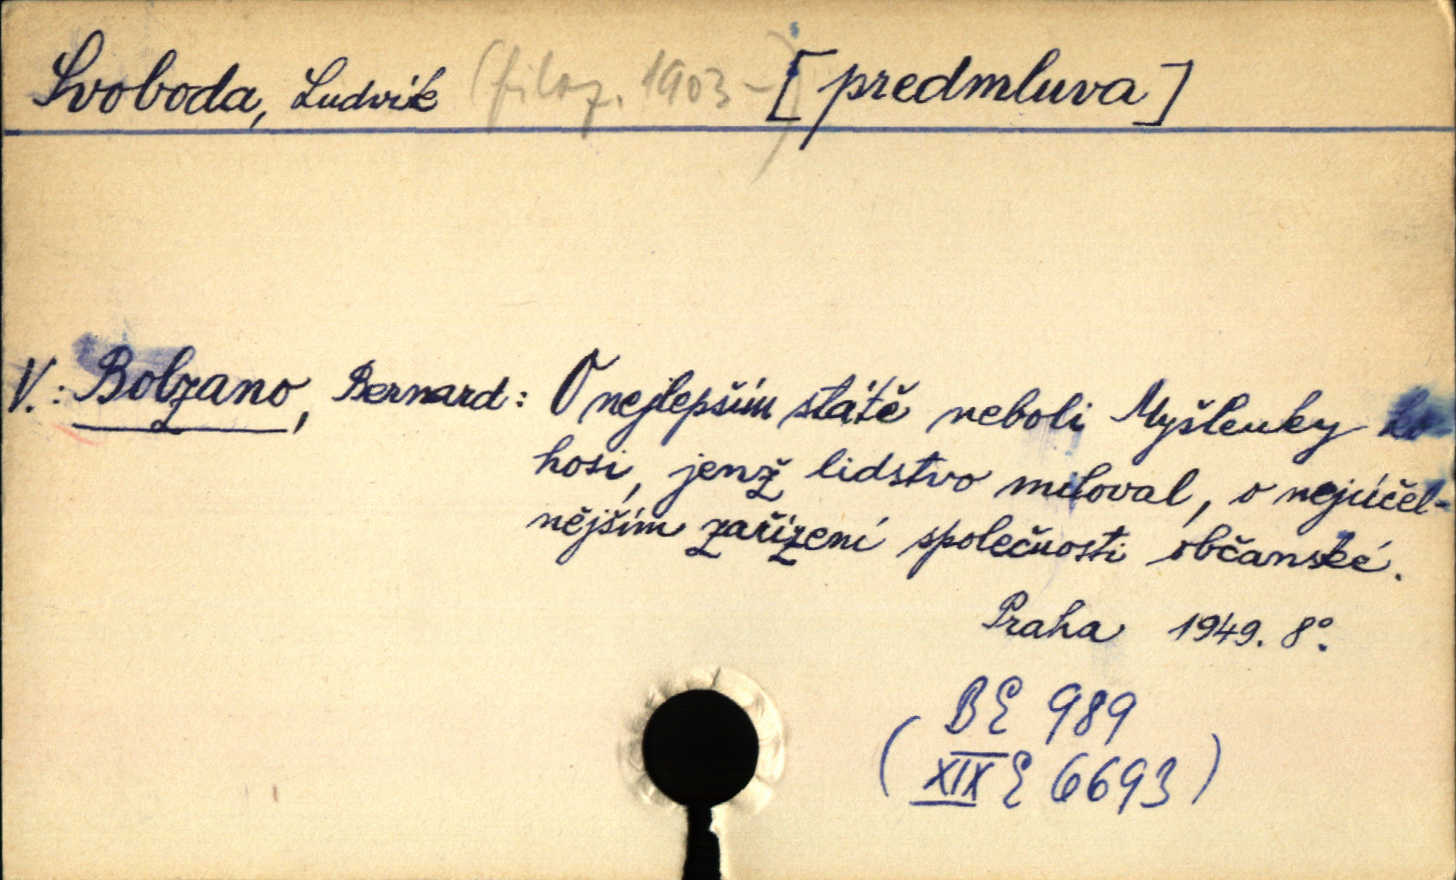 Svoboda, Ludvík (filoz. 1903 -) [predmluva]
V.: Bolzano, Bernard: O nejlepším státě neboli Myšlenky ko-
hosi, jenž lidstvo miloval, o nejúčel-
nějším zařízení společnosti občanské.
Praha 1949. 8°.
BE 989
(XIX E 6693)